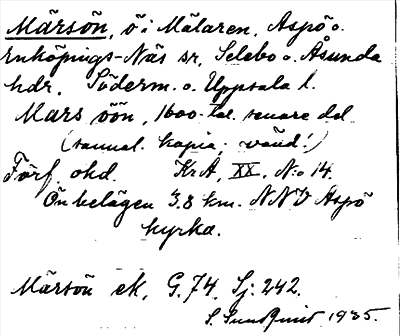 Märsön, ö i Mälaren, Aspö o.
Enköpings-Näs sr, Selebo o. Åsunda
hdr. Söderm. o. Uppsala l.
Mars öön, 1600-tal. senare del
(samml. kopia; vänd!)
Förf. okd. KrA, XX. N:o 14.
Ön belägen 3.8 km. NNV Aspö
kyrka.
Märsön ek, G. 74, Sj: 242.
S. Sundquist 1935.